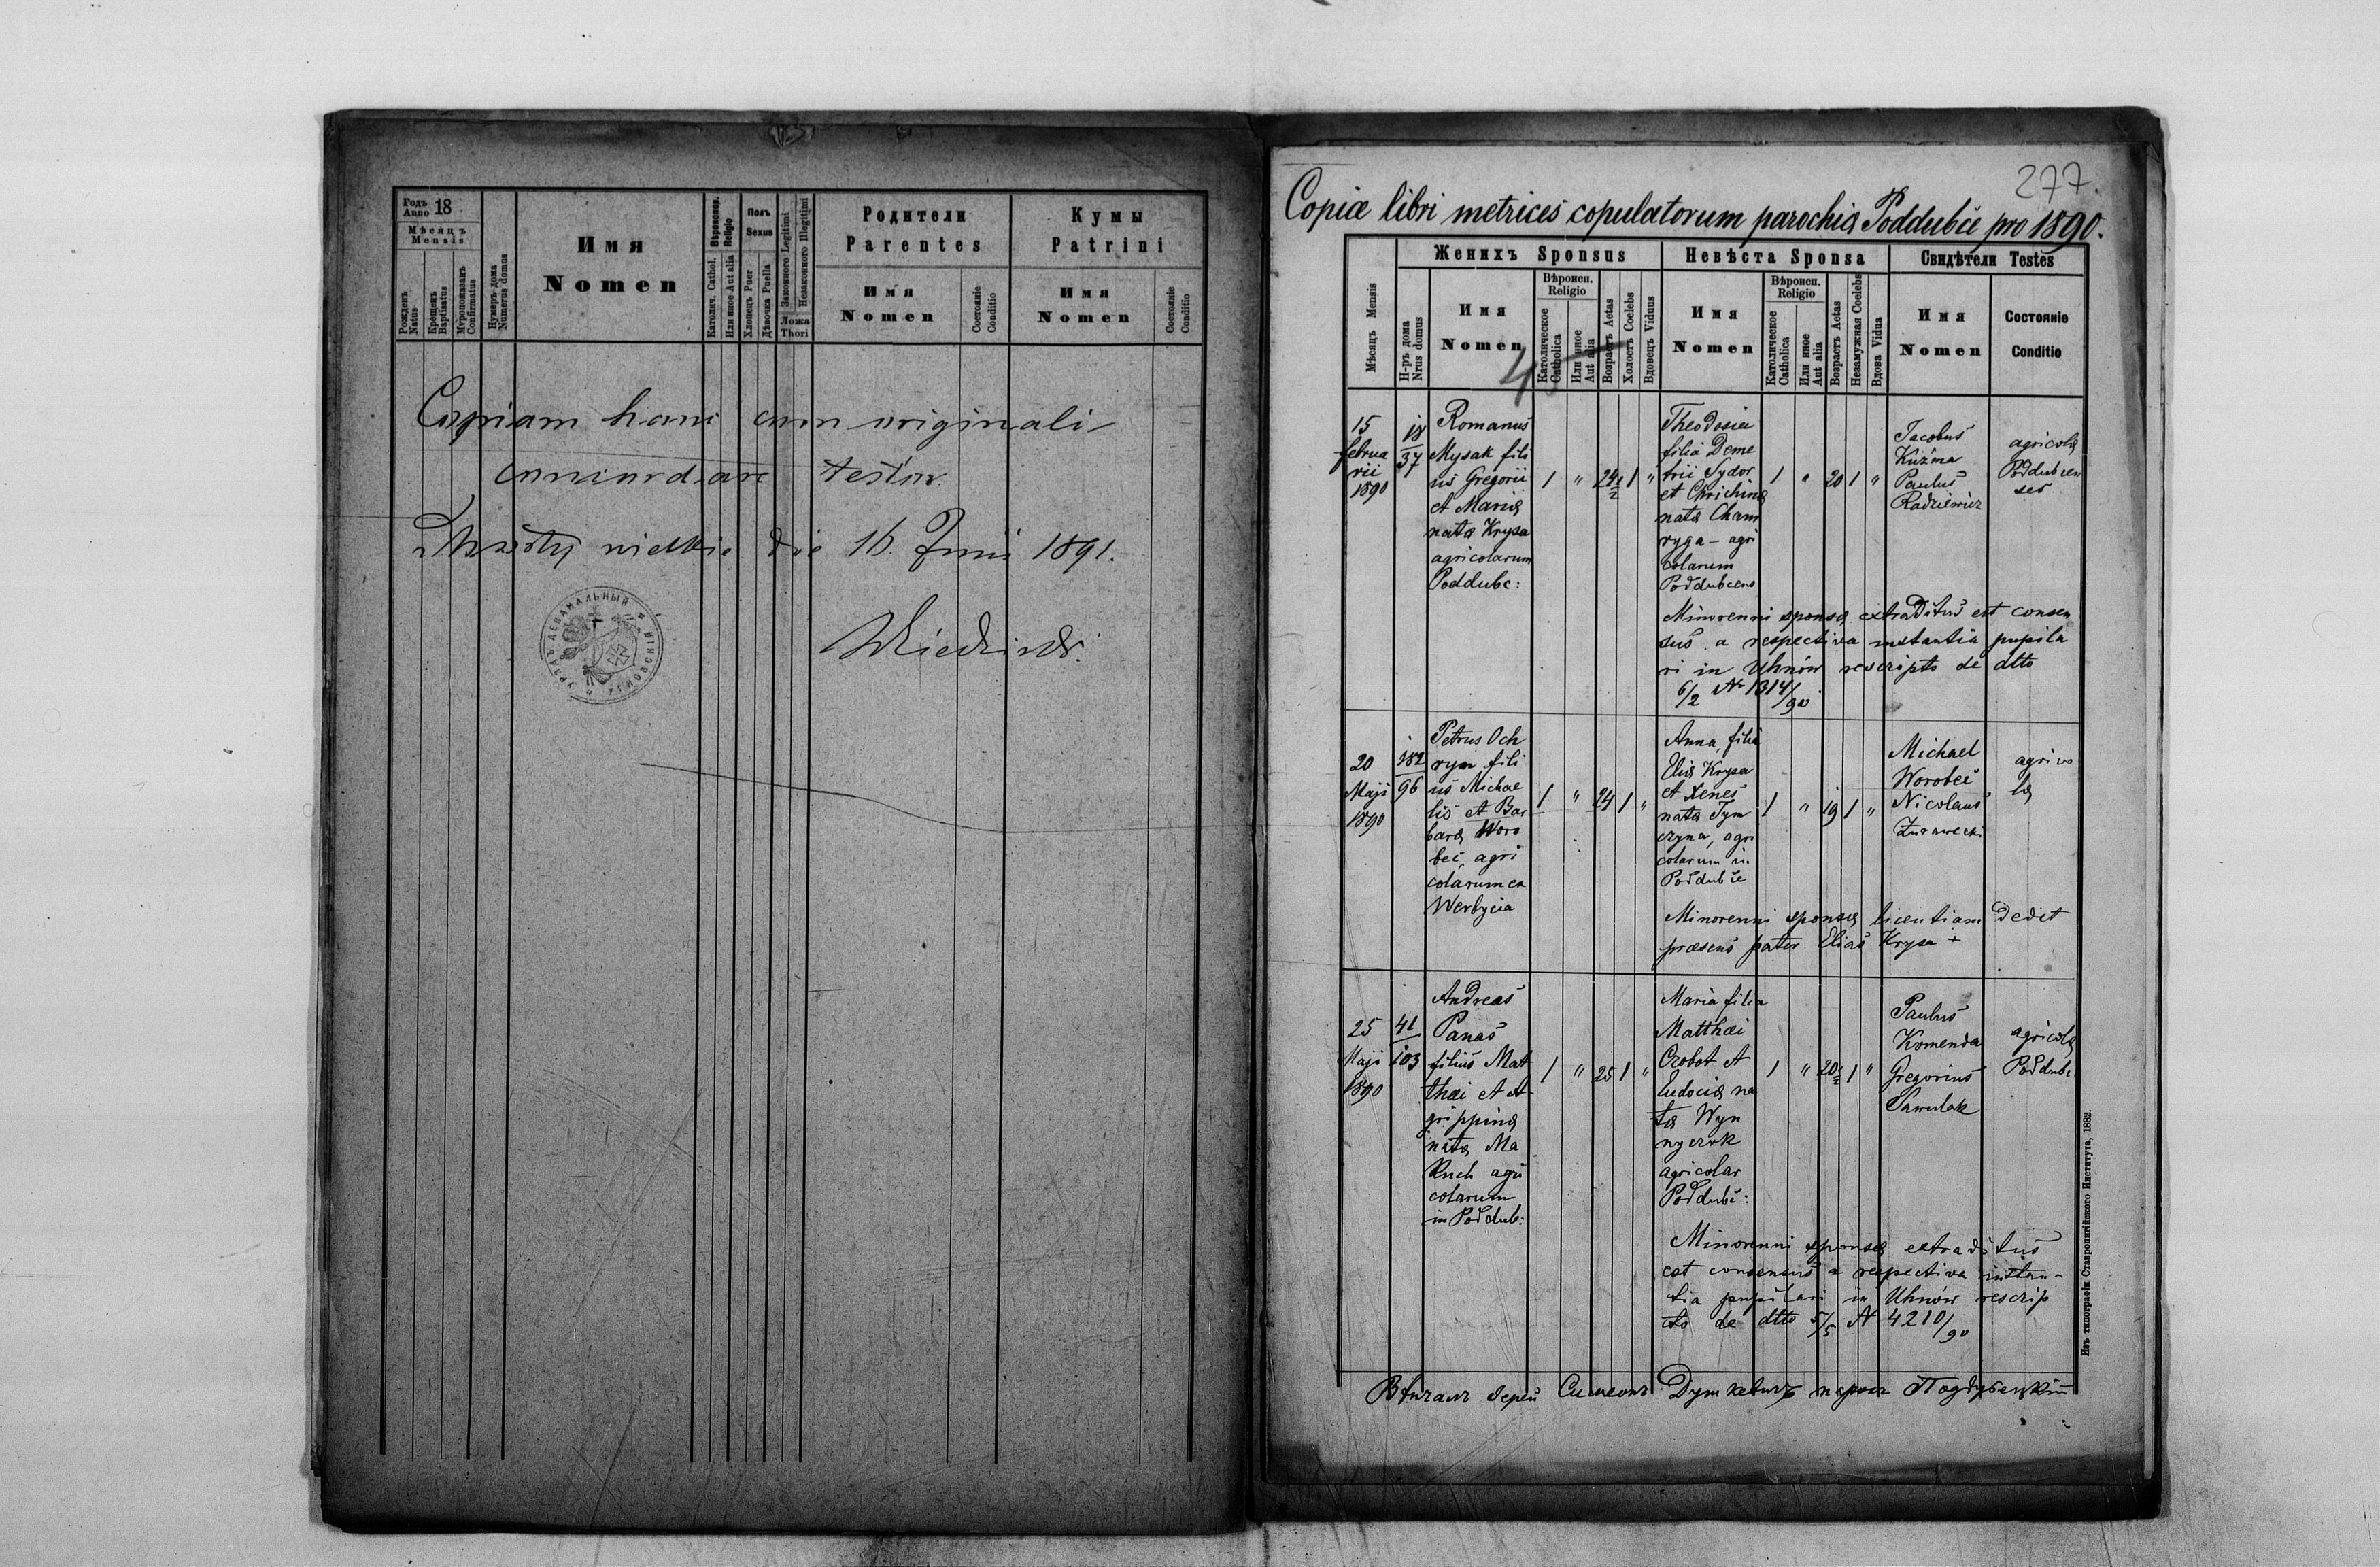 Годъ Anno 18
Мѣсяцъ Mensis
Рожденъ Natus
Крещенъ Baptisatus
Мѵропомазанъ Confirmatus
Нумеръ дома Numerus domus
Имя
Nomen
Вѣроиспов. Religio
Католич. Cathol.
Или иное Aut alia
Полъ Sexus
Хлопецъ Puer
Дѣвочка Puella
Законного Legitimi
Незаконного Illegitimi
Ложа Thori
Родители
Parentes
Имя
Nomen
Состояніе Conditio
Кумы
Patrini
Имя
Nomen
Состояніе Conditio
Copiam hanc cum originali
concordare testor.
Mosty wielkie die 16. Junii 1891.
277.
Copiæ libri metrices copulatorum parochiæ Poddubce pro 1890.
Мѣсяцъ Mensis
Женихъ Sponsus
Н-ръ дома Nrus domus
Имя
Nomen
Вѣроисп. Religio
Католическое Catholica
Или иное Aut alia
Возрастъ Aetas
Холостъ Coelebs
Вдовецъ Viduus
Невѣста Sponsa
Имя
Nomen
Вѣроисп. Religio
Католическое Catholica
Или иное Aut alia
Возрастъ Aetas
Незамужная Coelebs
Вдова Vidua
Свидѣтели Testes
Имя
Nomen
Состояніе
Conditio
45
15
februa
rii
1890
18
37
Romanus
Mysak fili
us Gregorii
et Mariæ
natæ Krysa
agricolarum
Poddubc:
1 " 24½ 1 "
Theodosia
filia Deme
trii Sydor
et Chrichinæ
natæ Cham
ryga - agri
colarum
Poddubcens
1 " 20 1 "
Jacobus
Kuźma
Paulus
Radziewicz
agricolæ
Poddubcen
ses
Minorenni sponsæ extraditus est consen
sus a respectiva instantia pupila
ri in Uhnów rescripto de dtto
6/2 N 1314/90
20
Maji
1890
182
96
Petrus Och
ryn fili
us Michae
lis et Bar
baræ Woro
bec, agri
colarum ex
Werbycia
1 " 24 1 "
Anna, filia
Eliæ Krysa
et Xenes
natæ Tym
czyna, agri
colarum in
Poddubce
1 " 19 1 "
Michael
Worobec
Nicolaus
Żurawecki
agrico
læ
Minorenni sponsæ licentiam dedit
præsens pater Elias Krysa +
25
Maji
1890
41
103
Andreas
Panas
filius Mat
thæi et A
grippinæ
natæ Ma
kuch agri
colarum
in Poddub:
1 " 25 1 "
Maria filia
Matthæi
Orobot et
Eudociæ na
tæ Wyn
nyczok
agricolar
Poddubc:
1 " 20½ 1 "
Paulus
Komenda
Gregorius
Pawulak
agricolæ
Poddubc
Minorenni sponsæ extraditus
est consensus a respectiva instan-
tia pupilari in Uhnów rescrip
to de dtto 5/5 N 4210/90
Вѣнчалъ Іерей Симеонъ парохъ Поддубецкій
Изъ типографіи Ставропигійского Института, 1882.